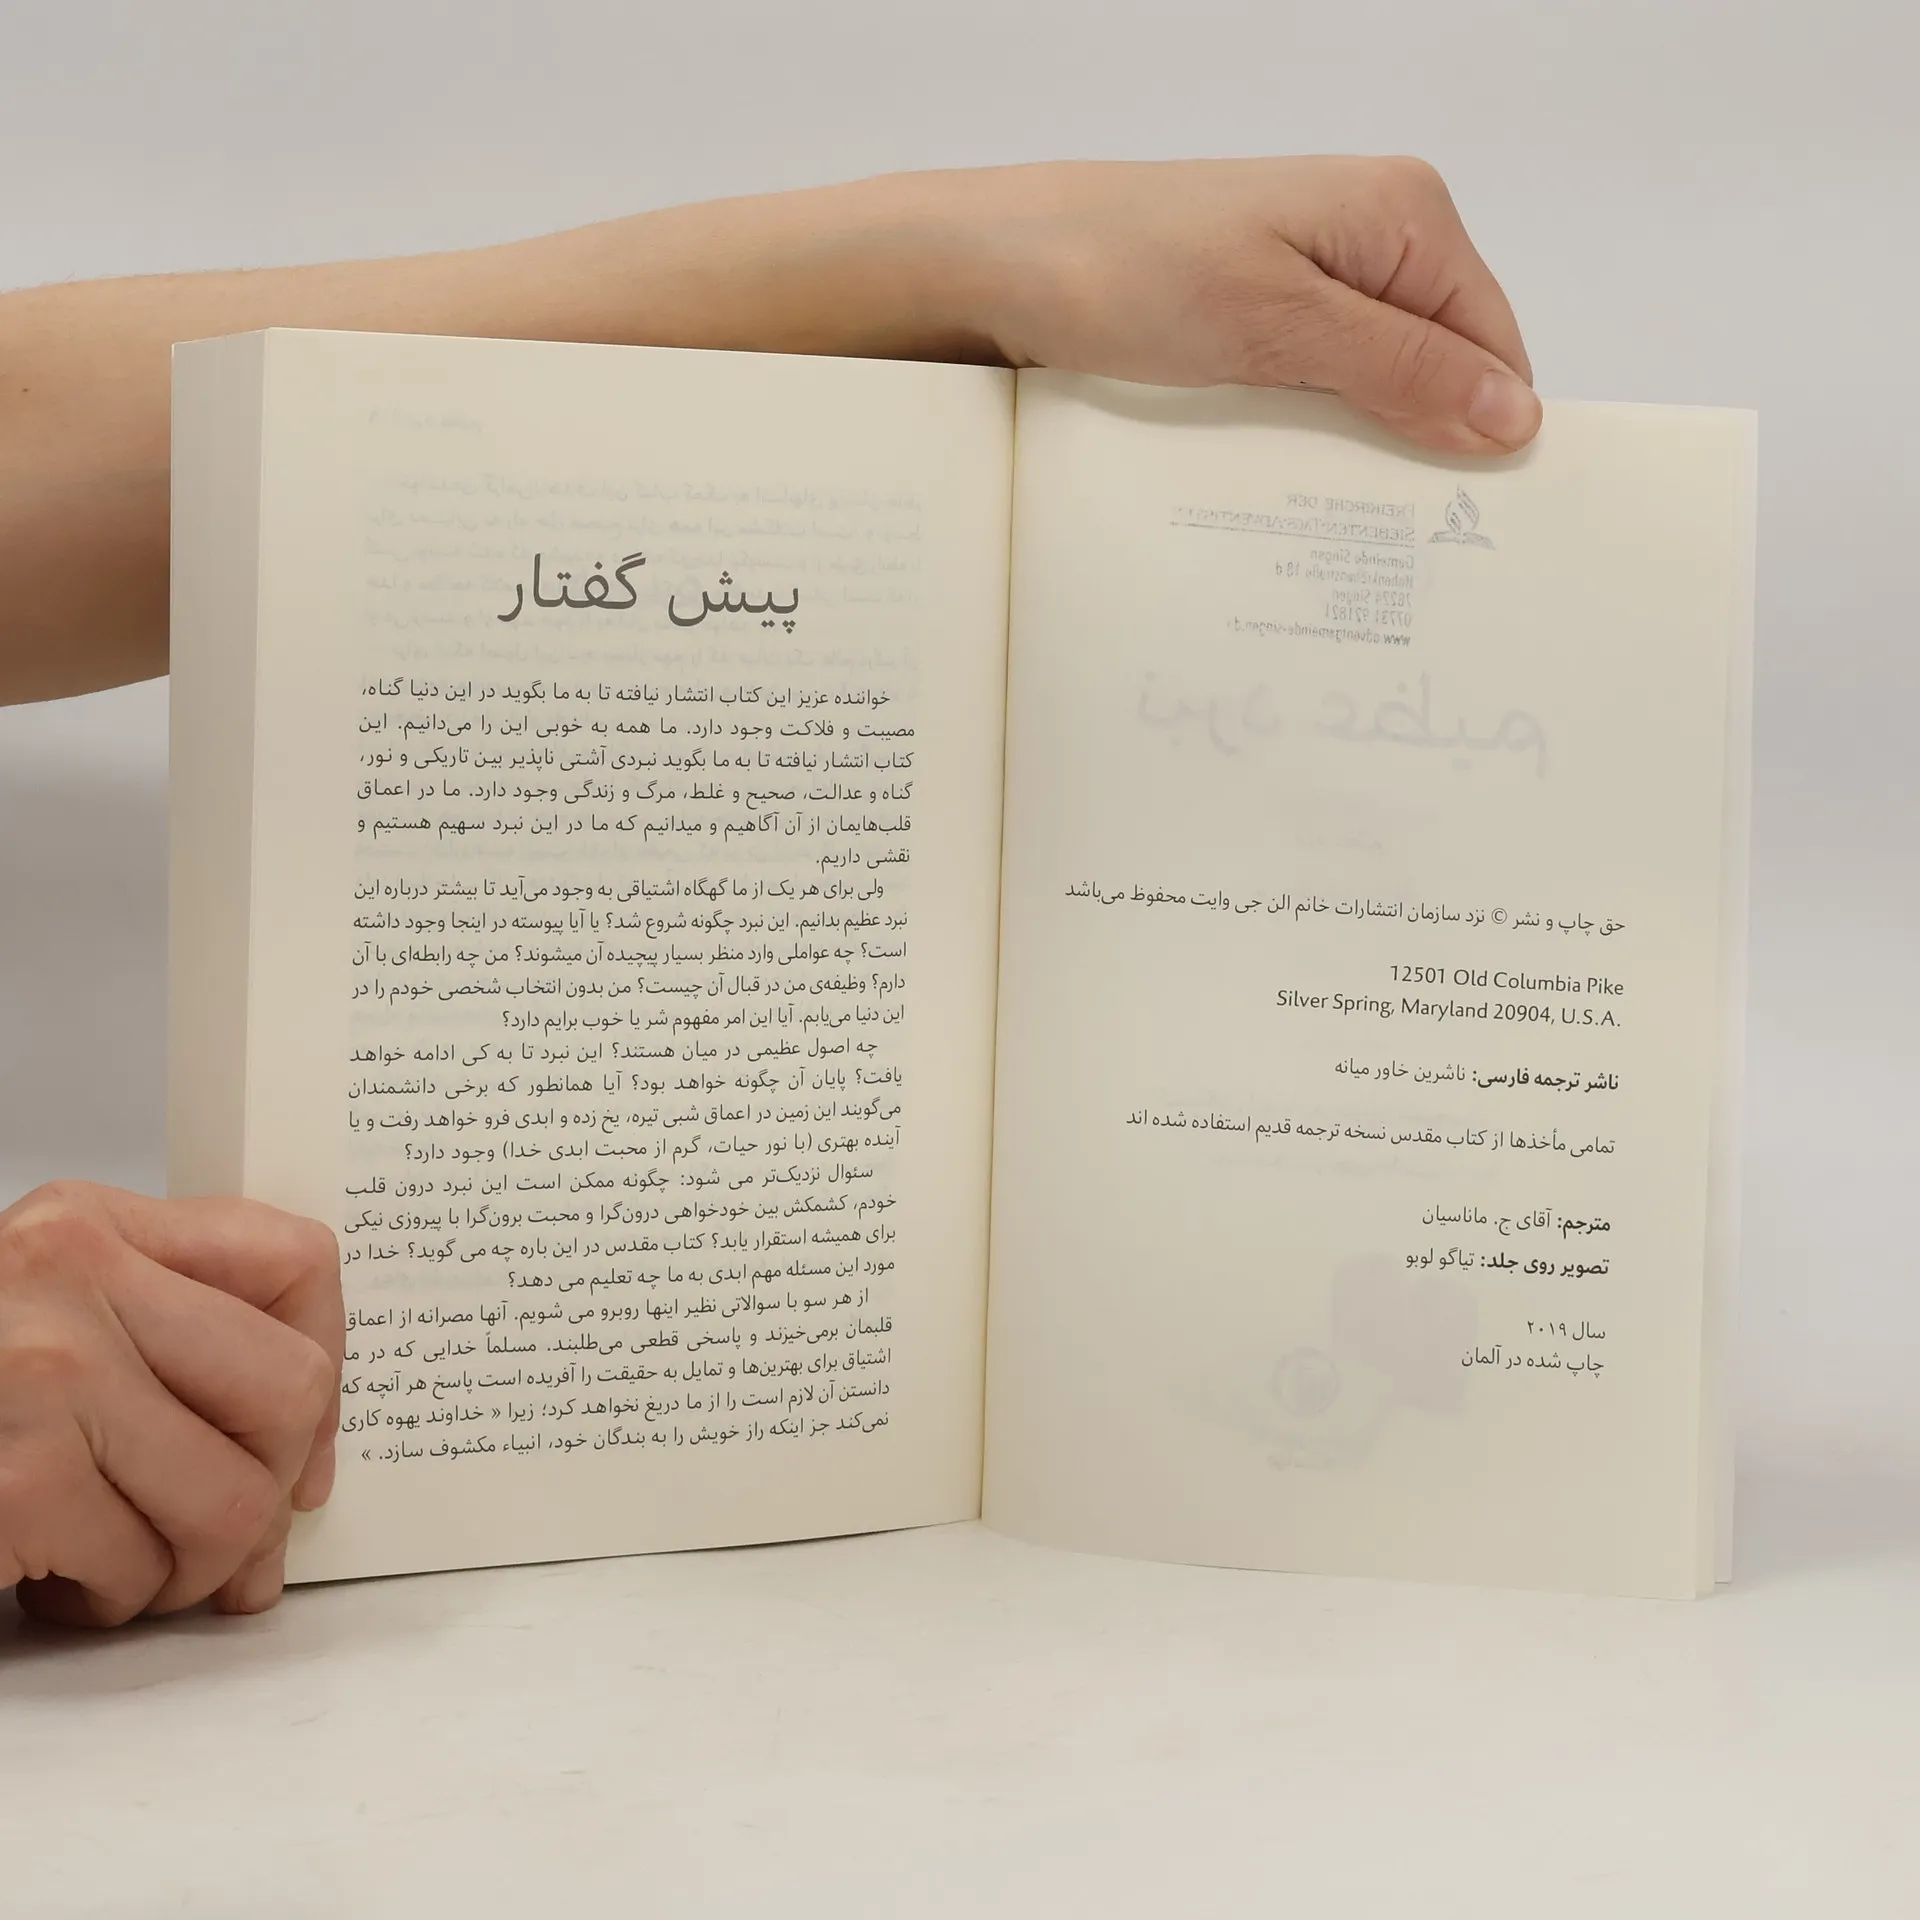 حق چاپ و نشر © نزد سازمان انتشارات خانم الن جی وایت محفوظ می‌باشد
12501 Old Columbia Pike
Silver Spring, Maryland 20904, U.S.A.
ناشر ترجمه فارسی: ناشرین خاور میانه
تمامی مأخذها از کتاب مقدس نسخه ترجمه قدیم استفاده شده اند
مترجم: آقای ج. ماناسیان
تصویر روی جلد: تیاگو لوبو
سال ۲۰۱۹
چاپ شده در آلمان
FREIKIRCHE DER
SIEBENTEN-TAGS-ADVENTISTEN
Gemeinde Singen
Hohenkrähenstraße 18 d
78224 Singen
07731 921821
www.adventgemeinde-singen.d
نبرد عظیم
پیش گفتار
خواننده عزیز این کتاب انتشار نیافته تا به ما بگوید در این دنیا گناه،
مصیبت و فلاکت وجود دارد. ما همه به خوبی این را می‌دانیم. این
کتاب انتشار نیافته تا به ما بگوید نبردی آشتی ناپذیر بین تاریکی و نور،
گناه و عدالت، صحیح و غلط، مرگ و زندگی وجود دارد. ما در اعماق
قلب‌هایمان از آن آگاهیم و میدانیم که ما در این نبرد سهیم هستیم و
نقشی داریم.
ولی برای هر یک از ما گهگاه اشتیاقی به وجود می‌آید تا بیشتر درباره این
نبرد عظیم بدانیم. این نبرد چگونه شروع شد؟ یا آیا پیوسته در اینجا وجود داشته
است؟ چه عواملی وارد منظر بسیار پیچیده آن میشوند؟ من چه رابطه‌ای با آن
دارم؟ وظیفه‌ی من در قبال آن چیست؟ من بدون انتخاب شخصی خودم را در
این دنیا می‌یابم. آیا این امر مفهوم شر یا خوب برایم دارد؟
چه اصول عظیمی در میان هستند؟ این نبرد تا به کی ادامه خواهد
یافت؟ پایان آن چگونه خواهد بود؟ آیا همانطور که برخی دانشمندان
می‌گویند این زمین در اعماق شبی تیره، یخ زده و ابدی فرو خواهد رفت و یا
آینده بهتری (با نور حیات، گرم از محبت ابدی خدا) وجود دارد؟
سئوال نزدیک‌تر می شود: چگونه ممکن است این نبرد درون قلب
خودم، کشمکش بین خودخواهی درون‌گرا و محبت برون‌گرا با پیروزی نیکی
برای همیشه استقرار یابد؟ کتاب مقدس در این باره چه می گوید؟ خدا در
مورد این مسئله مهم ابدی به ما چه تعلیم می دهد؟
از هر سو با سوالاتی نظیر اینها روبرو می شویم. آنها مصرانه از اعماق
قلبمان برمی‌خیزند و پاسخی قطعی می‌طلبند. مسلماً خدایی که در ما
اشتیاق برای بهترین‌ها و تمایل به حقیقت را آفریده است پاسخ هر آنچه که
دانستن آن لازم است را از ما دریغ نخواهد کرد؛ زیرا « خداوند یهوه کاری
نمی‌کند جز اینکه راز خویش را به بندگان خود، انبیاء مکشوف سازد. »